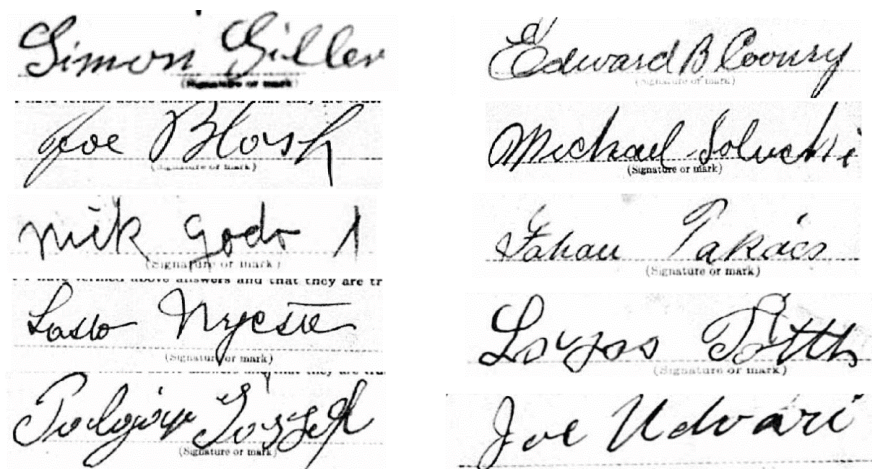 Simon Giller
(Signature or mark)
Joe Blosh
(Signature or mark)
Nick Godo
(Signature or mark)
above answers and that they are tr
Laslo
(Signature or mark)
that they are tru
József
(Signature or mark)
Edward B
(Signature or mark)
Michael
(Signature or mark)
Takács
(Signature or mark)
Lajos
(Signature or mark)
Joe Udvari